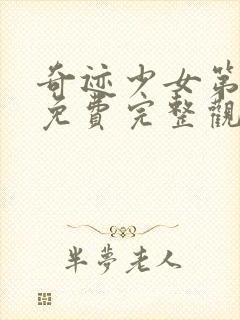 奇迹少女第
免費完整觀
半夢老人